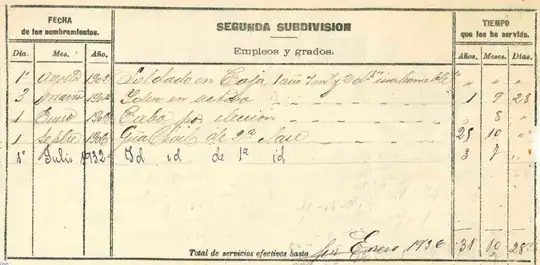 FECHA
de los nombramientos.
SEGUNDA SUBDIVISION
TIEMPO
que los ha servido.
Dia. Mes. Año.
Empleos y grados.
Años. Meses. Días.
1º Agosto 1902 Soldado en Caja 1 año 7 m y 2 d " " "
3 1904 Idem en activo 1 9 28
1 Enero 1906 Cabo por elección " 8 "
1 Septbre 1906 Gua Civil de 2ª clase 25 10 "
1º Julio 1932 Id id de 1ª id 3 7 "
Total de servicios efectivos hasta fin Enero 1936 31 10 28